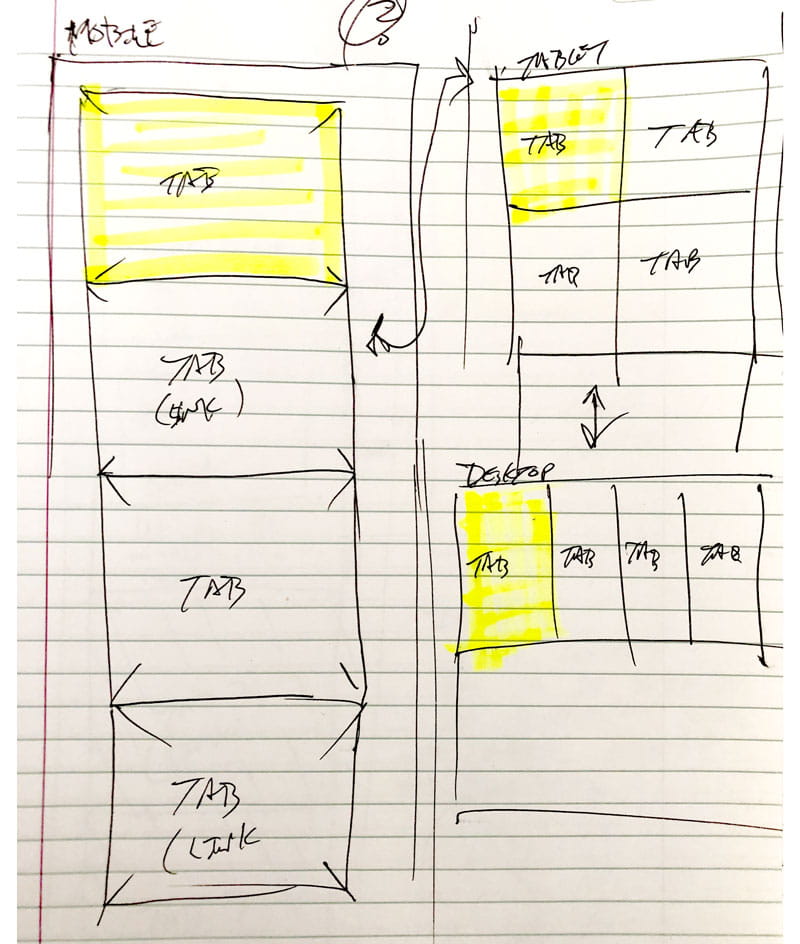 MOBILE
?
TAB
TAB
(LINK)
TAB
TAB
(LINK
TABLET
TAB
TAB
TAB
TAB
DESKTOP
TAB
TAB
TAB
TAB